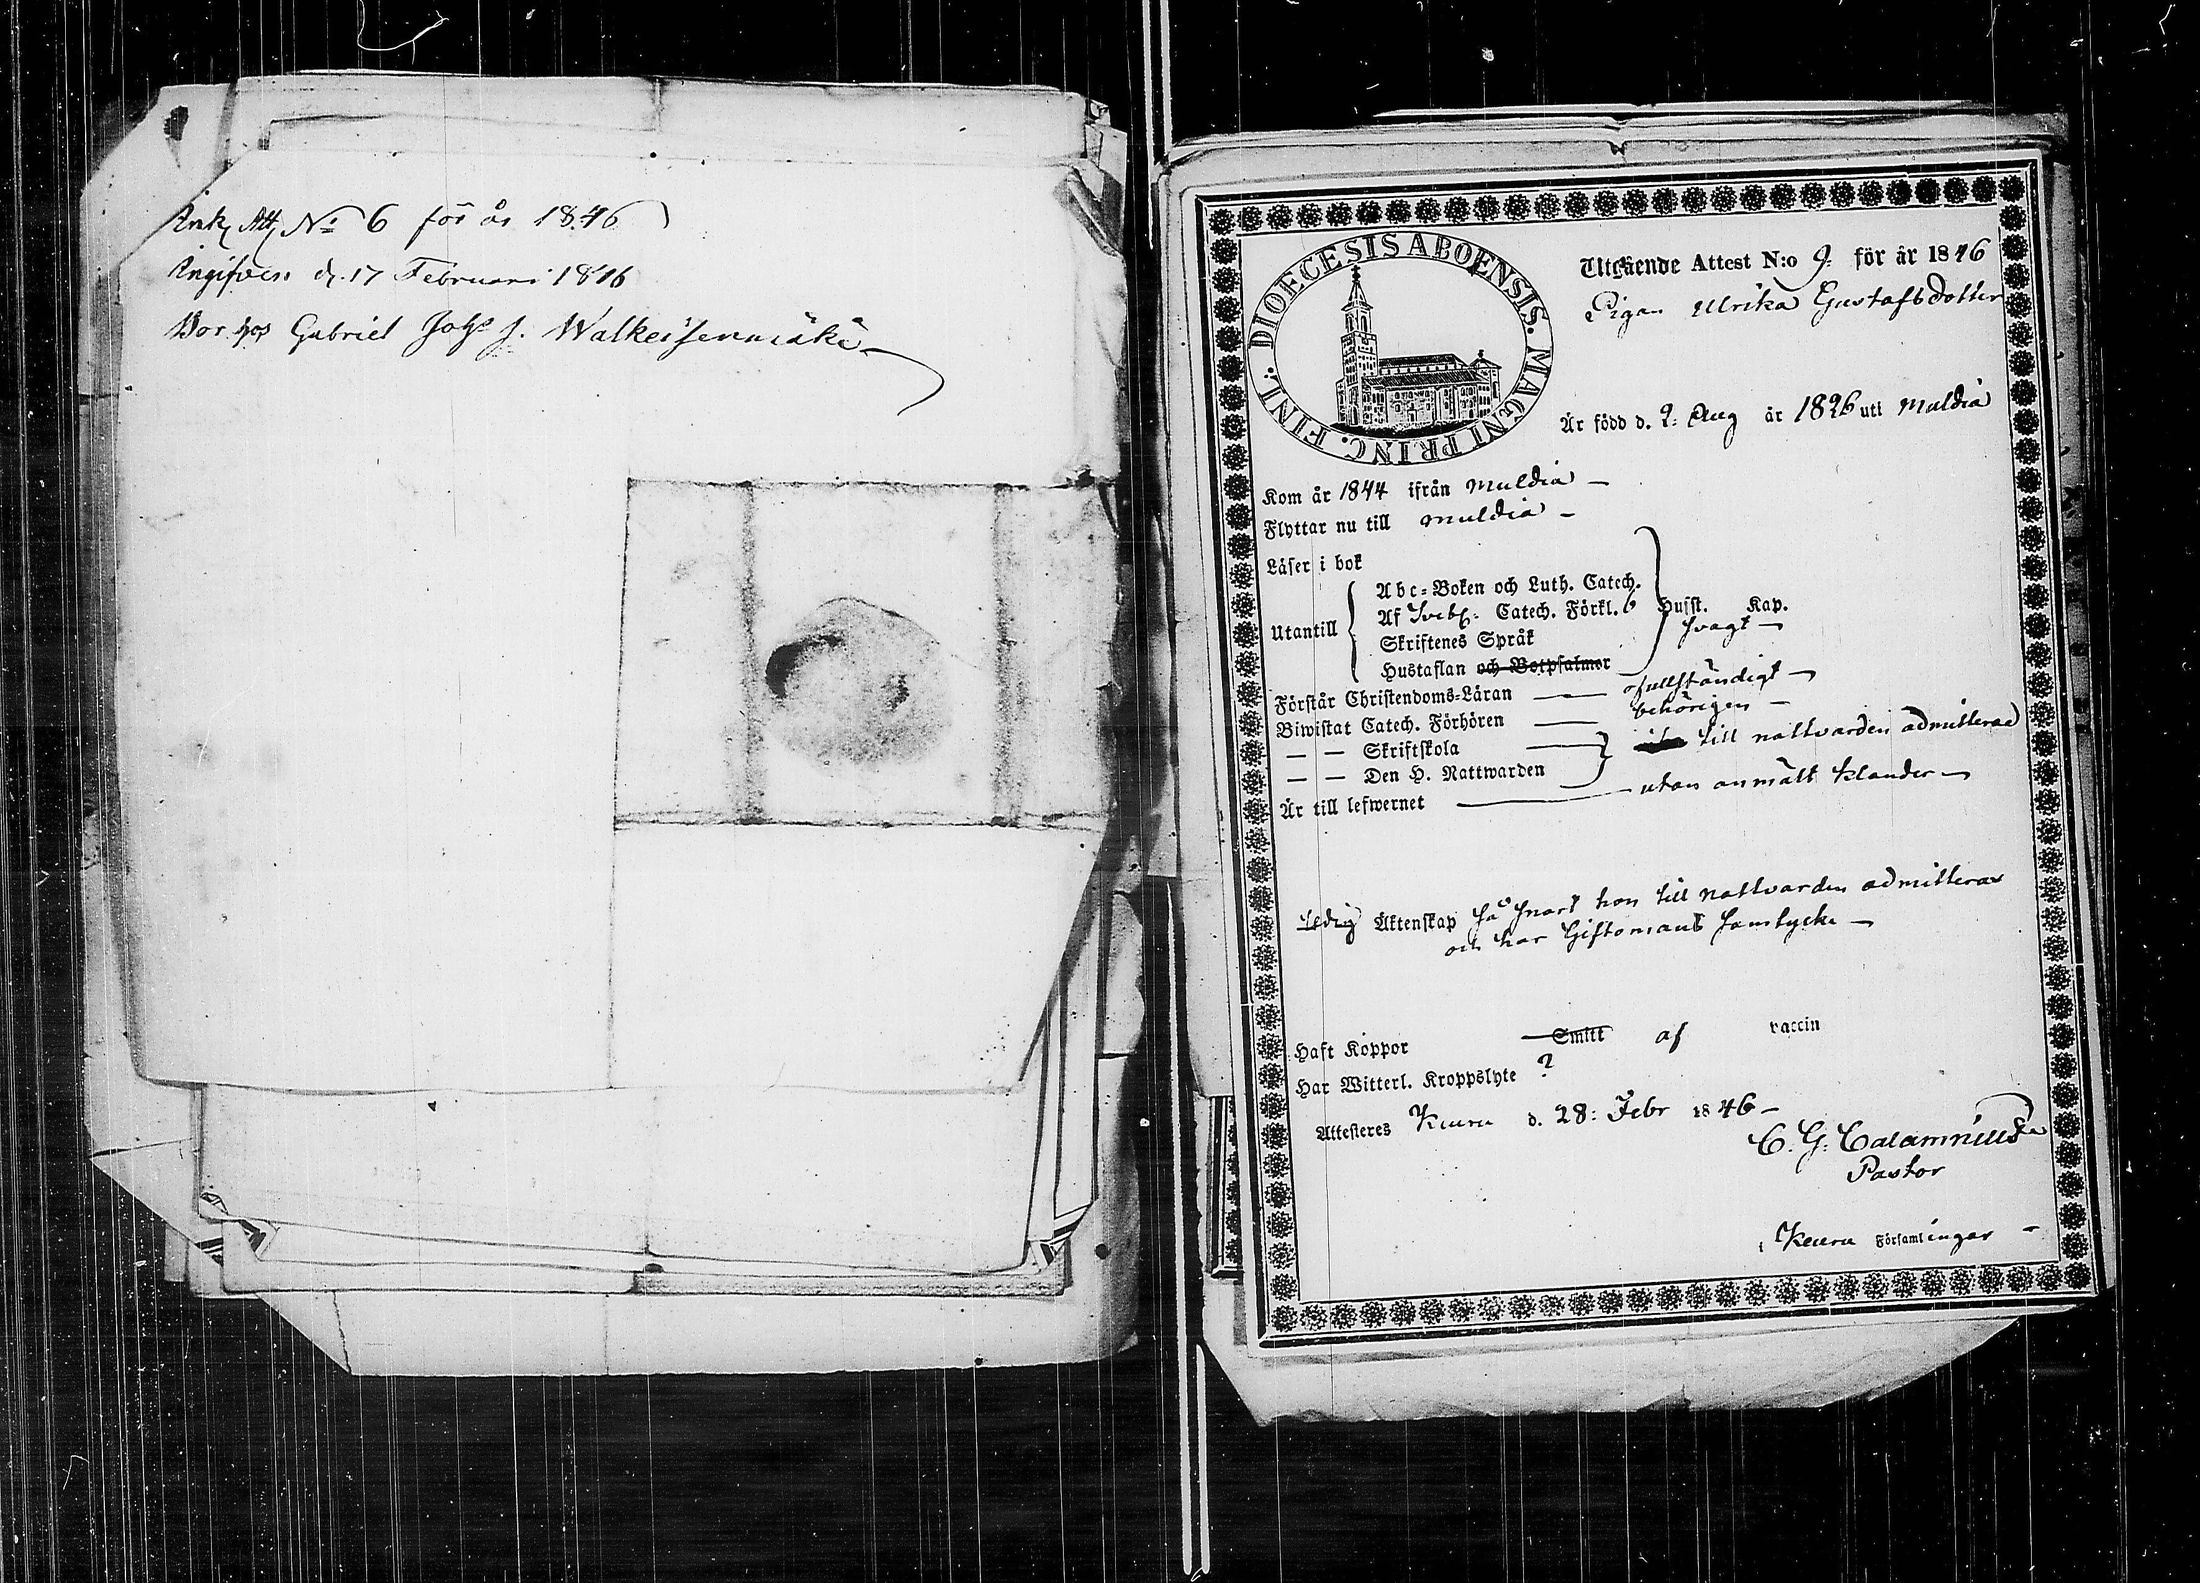 Ank. Att. No 6 för år 1846
Ingifven d. 17 Februari 1846
Bor hos Gabriel Joh. s. Walkeisenmäki
DIOECESIS ABOENSIS. MAGNI PRINC. FINL.
Utgående Attest N:o 9. för år 1846
Pigan Ulrika Gustafsdotter
Är född d. 2: Aug år 1826 uti Muldia
Kom år 1844 ifrån Muldia —
Flyttar nu till Muldia —
Läser i bok
Utantill
Abc-Boken och Luth. Catech.
Af Sveb. Catech. Förkl. 6 Hufst. Kap.
svagt —
Skriftenes Språk
Hustaflan och Botpsalmer
Förstår Christendoms-Läran — ofullständigt —
Biwistat Catech. Förhören — behörigen —
— — Skriftskola — till nattvarden admitterad
— — Den H. Nattwarden
Är till lefwernet — utan anmält klander —
Ledig Äktenskap så snart hon till nattvarden admitteras
och har Giftomans samtycke —
Haft Koppor Smitt af vaccin
Har Witterl. Kroppslyte ?
Attesteres Keuru d. 28: Febr 1846 —
C. G. Calamnius
Pastor
i Keuru Församlingar —